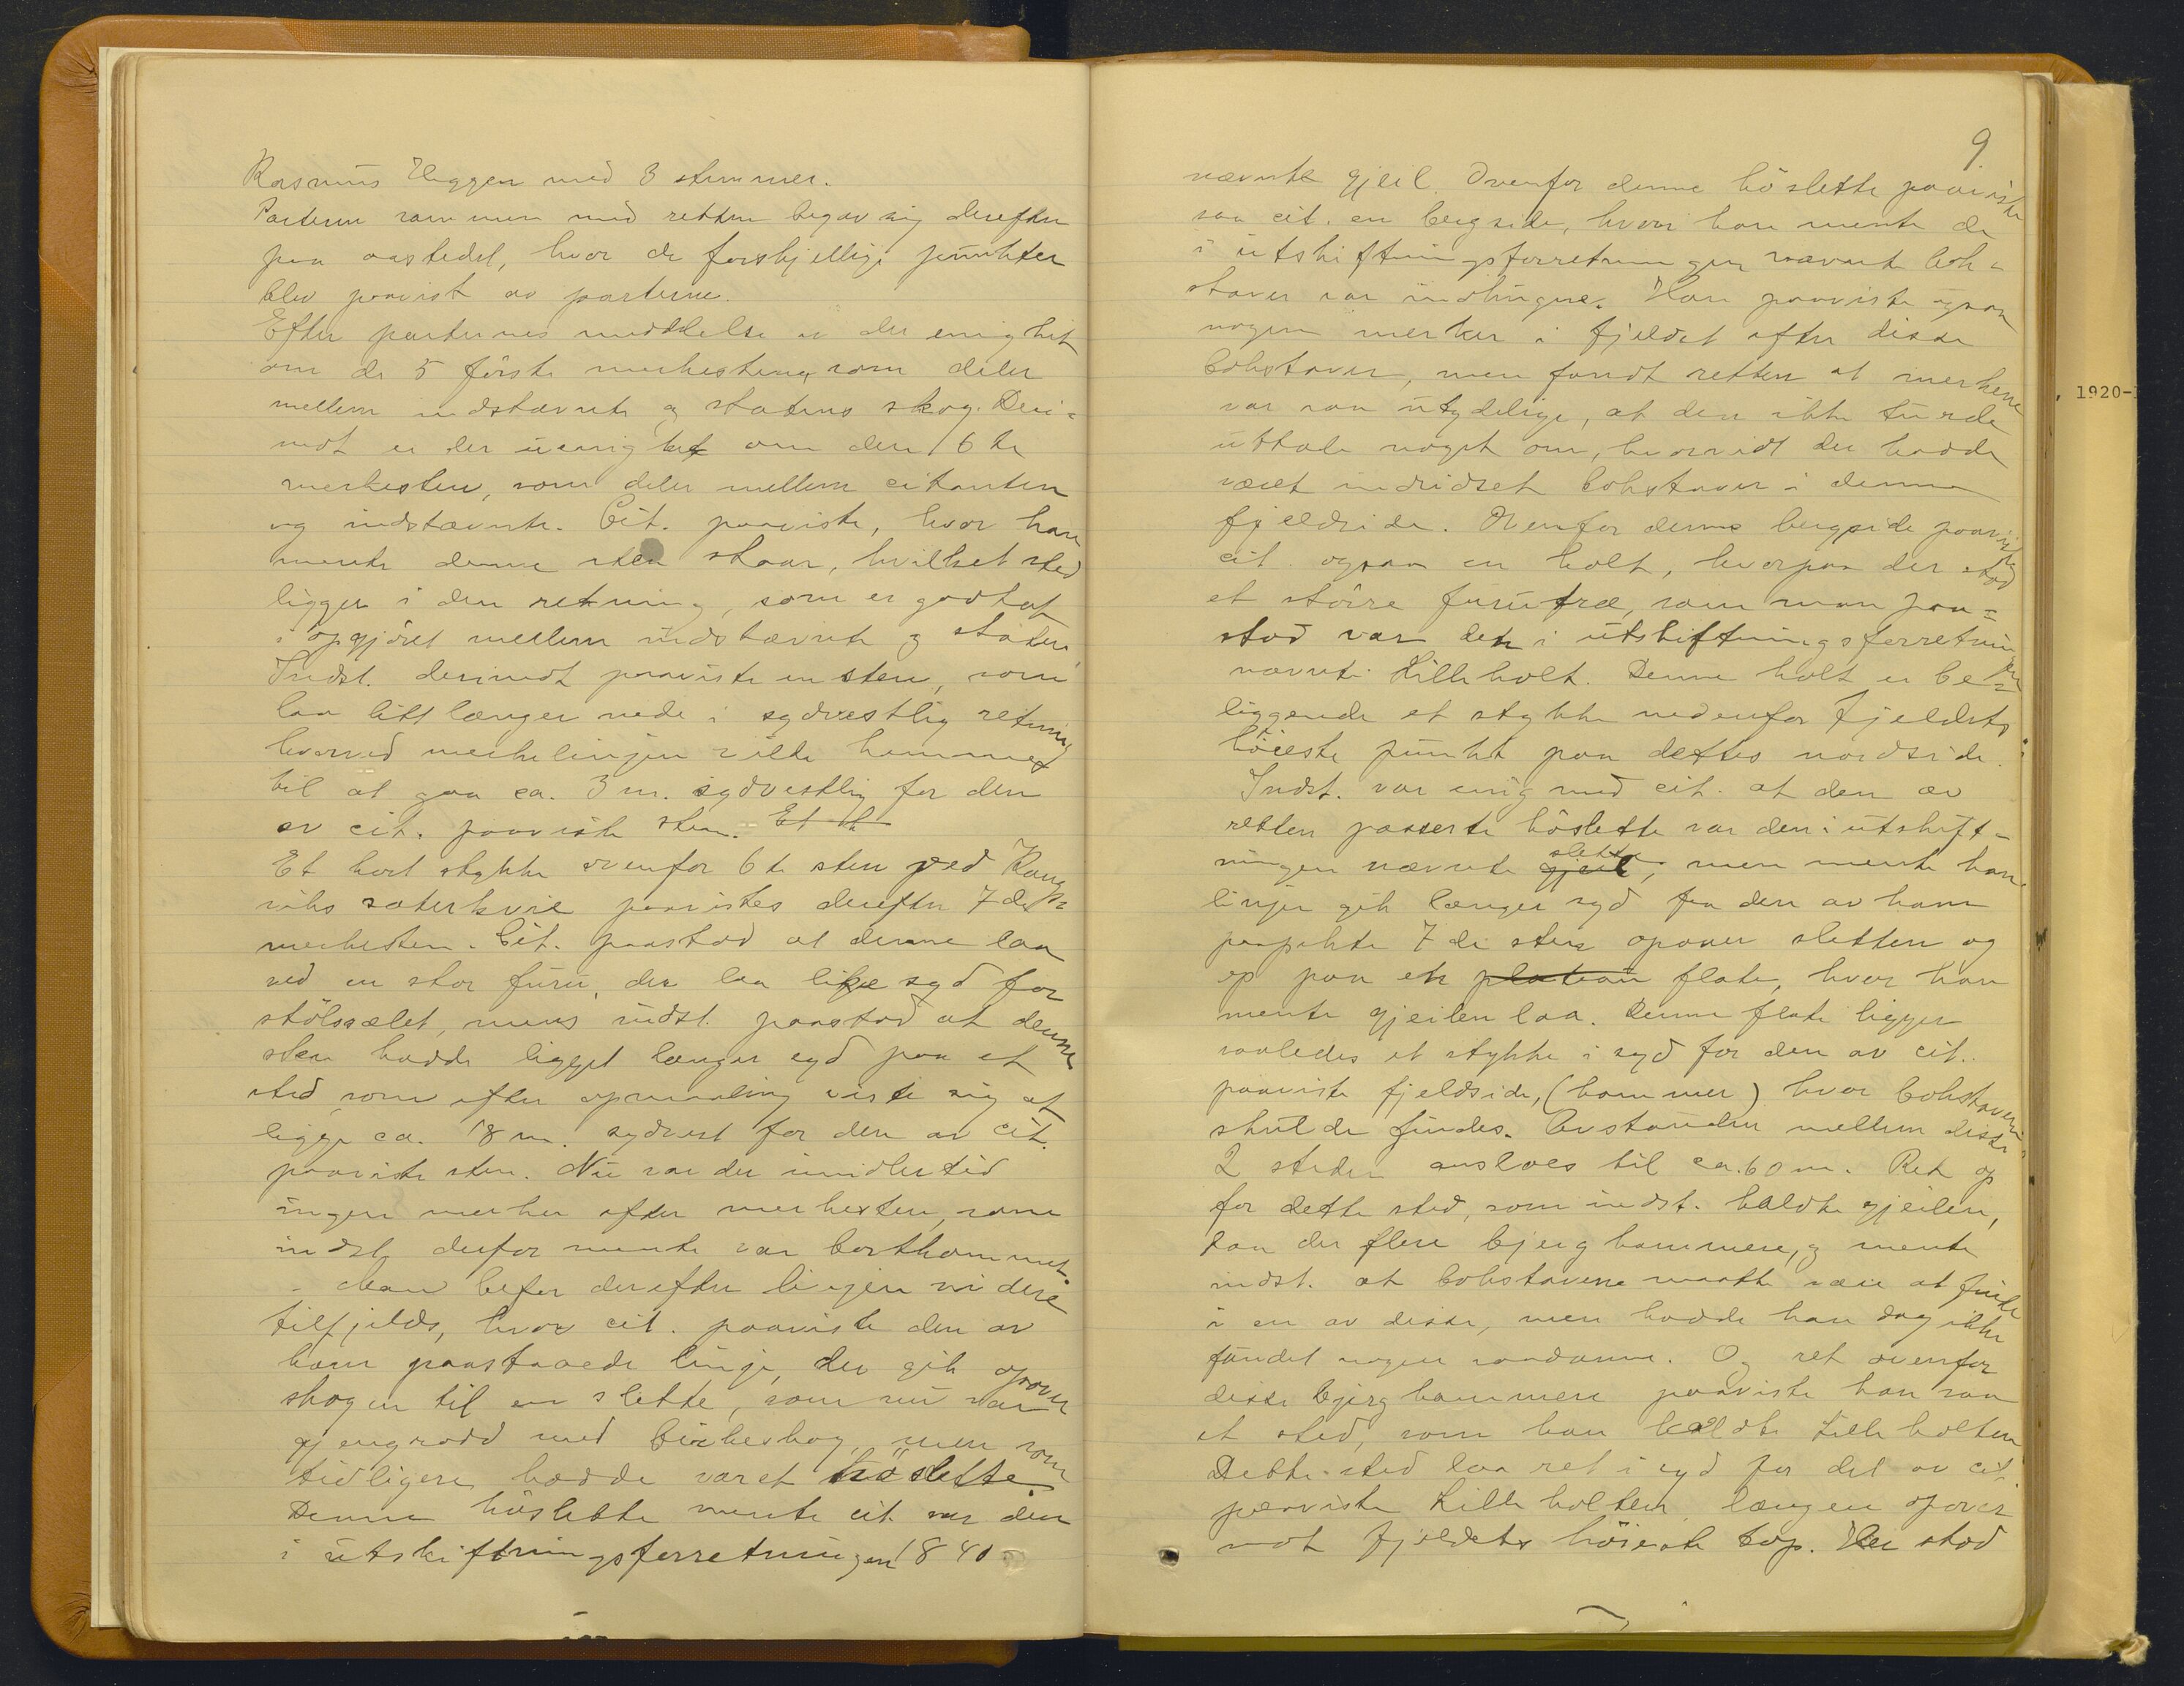 Rasmus Heggen med 3 stemmer.
Parterne sammen med retten begav sig derefter
paa aastedet, hvor de forskjellige punkter
blev paavist av parterne.
Efter parternes meddelelse er der enighet
om de 5 förste merkestene som deler
mellem indstævnte og statens skog. Deri-
mot er der uenighet om den 6te
merkesten, som deler mellem citanten
og indstævnte. Cit. paaviste, hvor han
mente denne sten staar, hvilket sted
ligger i den retning, som er godtat
i opgjöret mellem indstævnte og staten,
Indst. derimot paaviste en sten, som
laa litt længer nede i sydvestlig retning
hvorved merkelinjen vilde kommet
til at gaa ca. 3 m. sydvestlig for den
av cit. paaviste sten. Et st
Et kort stykke ovenfor 6te sten ved Kangs-
viks sæterkvie paavistes derefter 7de
merkesten. Cit. paastod at denne laa
ved en stor furu, der laa like syd for
stölssælet, mens indst. paastod at denne
sten hadde ligget længer syd paa et
sted som efter opmaaling viste sig at
ligge ca. 18 m. sydvest for den av cit.
paaviste sten. Nu var der imidlertid
ingen merker efter merkesten, som
indst. derfor mente var bortkommet.
- Man befor derefter linjen videre
tilfjelds, hvor cit. paaviste den av
ham paastaaede linje, der gik opover
skogen til en slette, som nu var
gjengrodd med birkeskog, men som
tidligere hadde været höslette.
Denne höslette mente cit. var den
i utskiftningsforretningen 1840
9
nævnte gjeil. Ovenfor denne höslette paaviste
saa cit. en bergside, hvori han mente de
i utskiftningsforretningen nævnte bok-
staver var indhugne. Han paaviste ogsaa
nogen merker i fjeldet efter disse
bokstaver, men fandt retten at merkene
var saa utydelige, at den ikke turde
uttale noget om, hvorvidt der hadde
været indridset bokstaver i denne
fjeldside. Ovenfor denne bergside paaviste
cit. ogsaa en holt, hvorpaa der stod
et större furutræ, som man paa-
stod var den i utskiftningsforretningen
nævnte Lilleholt. Denne holt er be-
liggende et stykke nedenfor fjeldets
höieste punkt paa dettes nordside.
Indst. var enig med cit. at den av
retten passerte höslette var den i utskift-
ningen nævnte gjeil slette, men mente han
linjen gik længer syd fra den av ham
paapekte 7de sten opover sletten og
op paa en plataau flate, hvor han
mente gjeilen laa. Denne flate ligger
saaledes et stykke i syd for den av cit.
paaviste fjeldside, (hammer) hvor bokstavene
skulde findes. Avstanden mellem disse
2 steder ansloes til ca. 60 m. Ret op
for dette sted, som indst. kaldte gjeilen,
laa der flere bjerghammere, og mente
indst. at bokstavene maatte være at finde
i en av disse, men hadde han dog ikke
fundet nogen saadanne. Og ret ovenfor
disse bjerghammere paaviste han saa
et sted, som han kaldte Lilleholten
Dette sted laa ret i syd for det av cit.
paaviste Lilleholten længer opover
mot fjeldets höieste top. Her stod
, 1920-